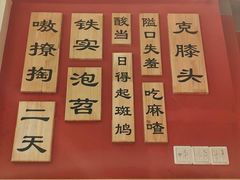 克膝头
隘口失羞
吃麻喳
酸当
日得起斑鸠
铁实
泡苕
嗷撩掏
二天